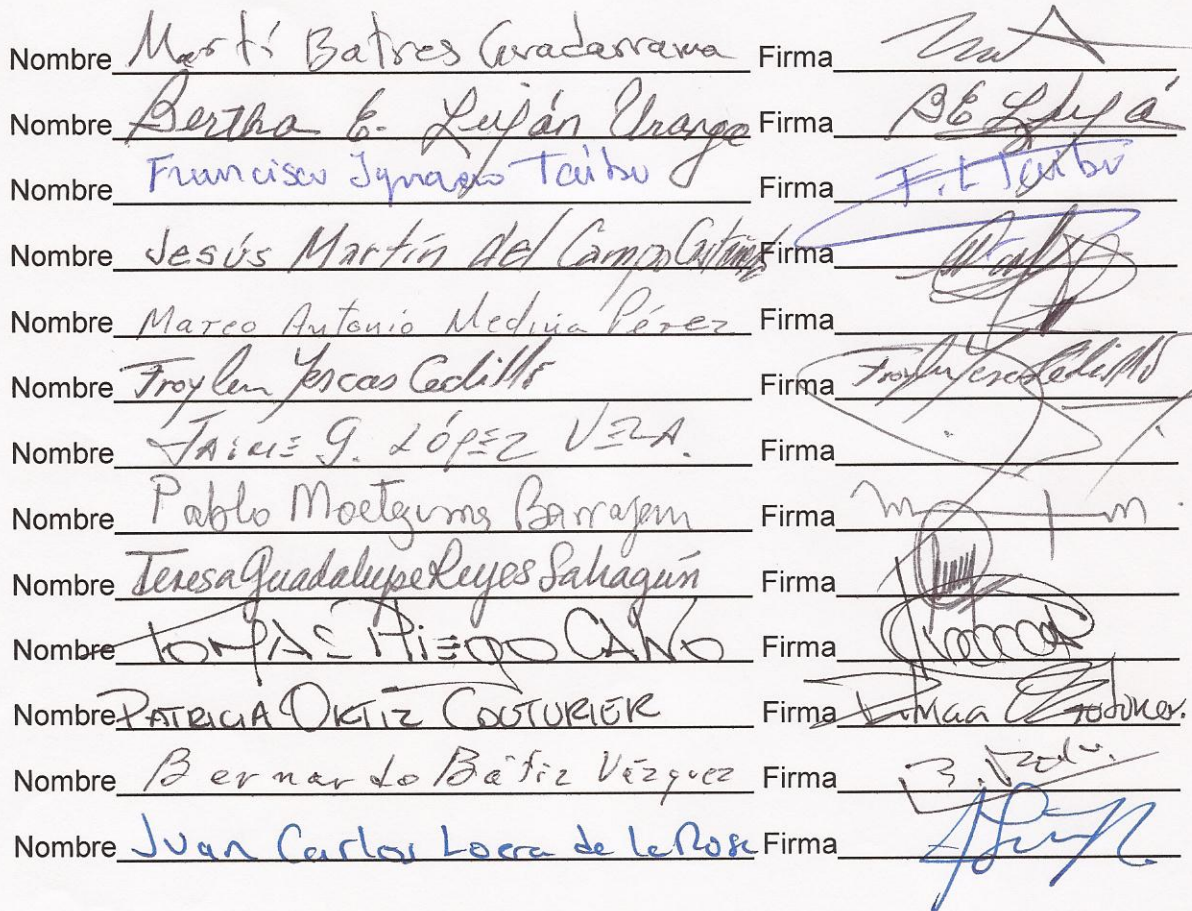 Nombre Martí Batres Guadarrama Firma
Nombre Bertha E. Luján Uranga Firma BE Lujá
Nombre Francisco Ignacio Taibo Firma F. I Taibo
Nombre Jesús Martín del Campo Castañeda Firma
Nombre Marco Antonio Medina Pérez Firma
Nombre Froylan Yescas Cedillo Firma Froylan Yescas Cedillo
Nombre JAIME G. LÓPEZ VERA. Firma
Nombre Pablo Moctezuma Barragan Firma
Nombre Teresa Guadalupe Reyes Sahagún Firma
Nombre TOMÁS PLIEGO CALVO Firma
Nombre PATRICIA ORTIZ COUTURIER Firma
Nombre Bernardo Bátiz Vázquez Firma
Nombre Juan Carlos Loera de la Rosa Firma